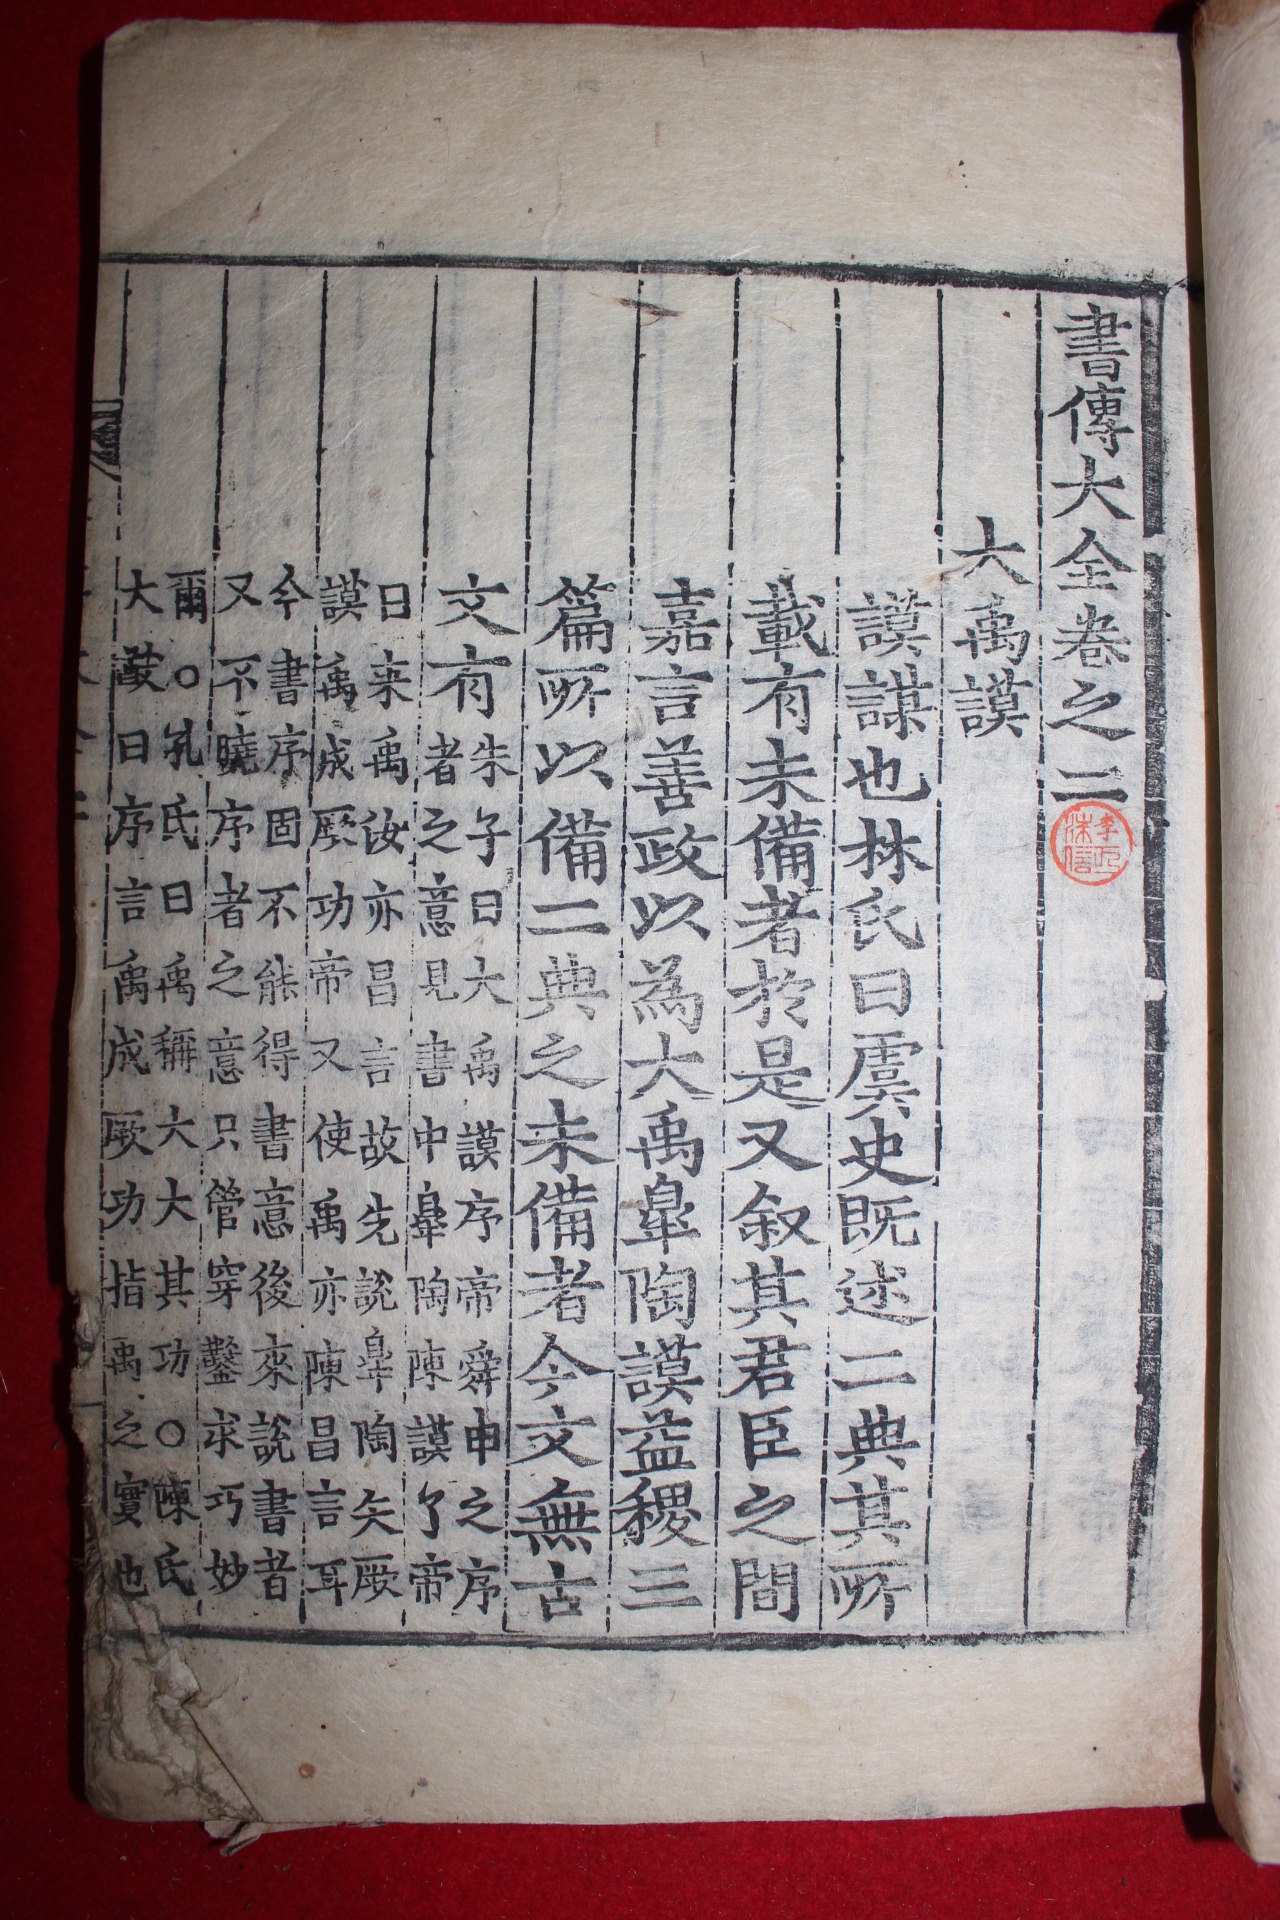 書傳大全卷之二
大禹謨
謨謀也林氏曰虞史既述二典其所
載有未備者於是又叙其君臣之間
嘉言善政以為大禹皐陶謨益稷三
篇所以備二典之未備者今文無古
文有
朱子曰大禹謨序帝舜申之序
者之意見書中皐陶陳謨了帝
曰来禹汝亦昌言故先說皐陶矢厥
謨禹成厥功帝又使禹亦陳昌言耳
今書序固不能得書意後來說書者
又不曉序者之意只管穿鑿求巧妙
爾○孔氏曰禹稱大大其功○陳氏
大猷曰序言禹成厥功指禹之實也